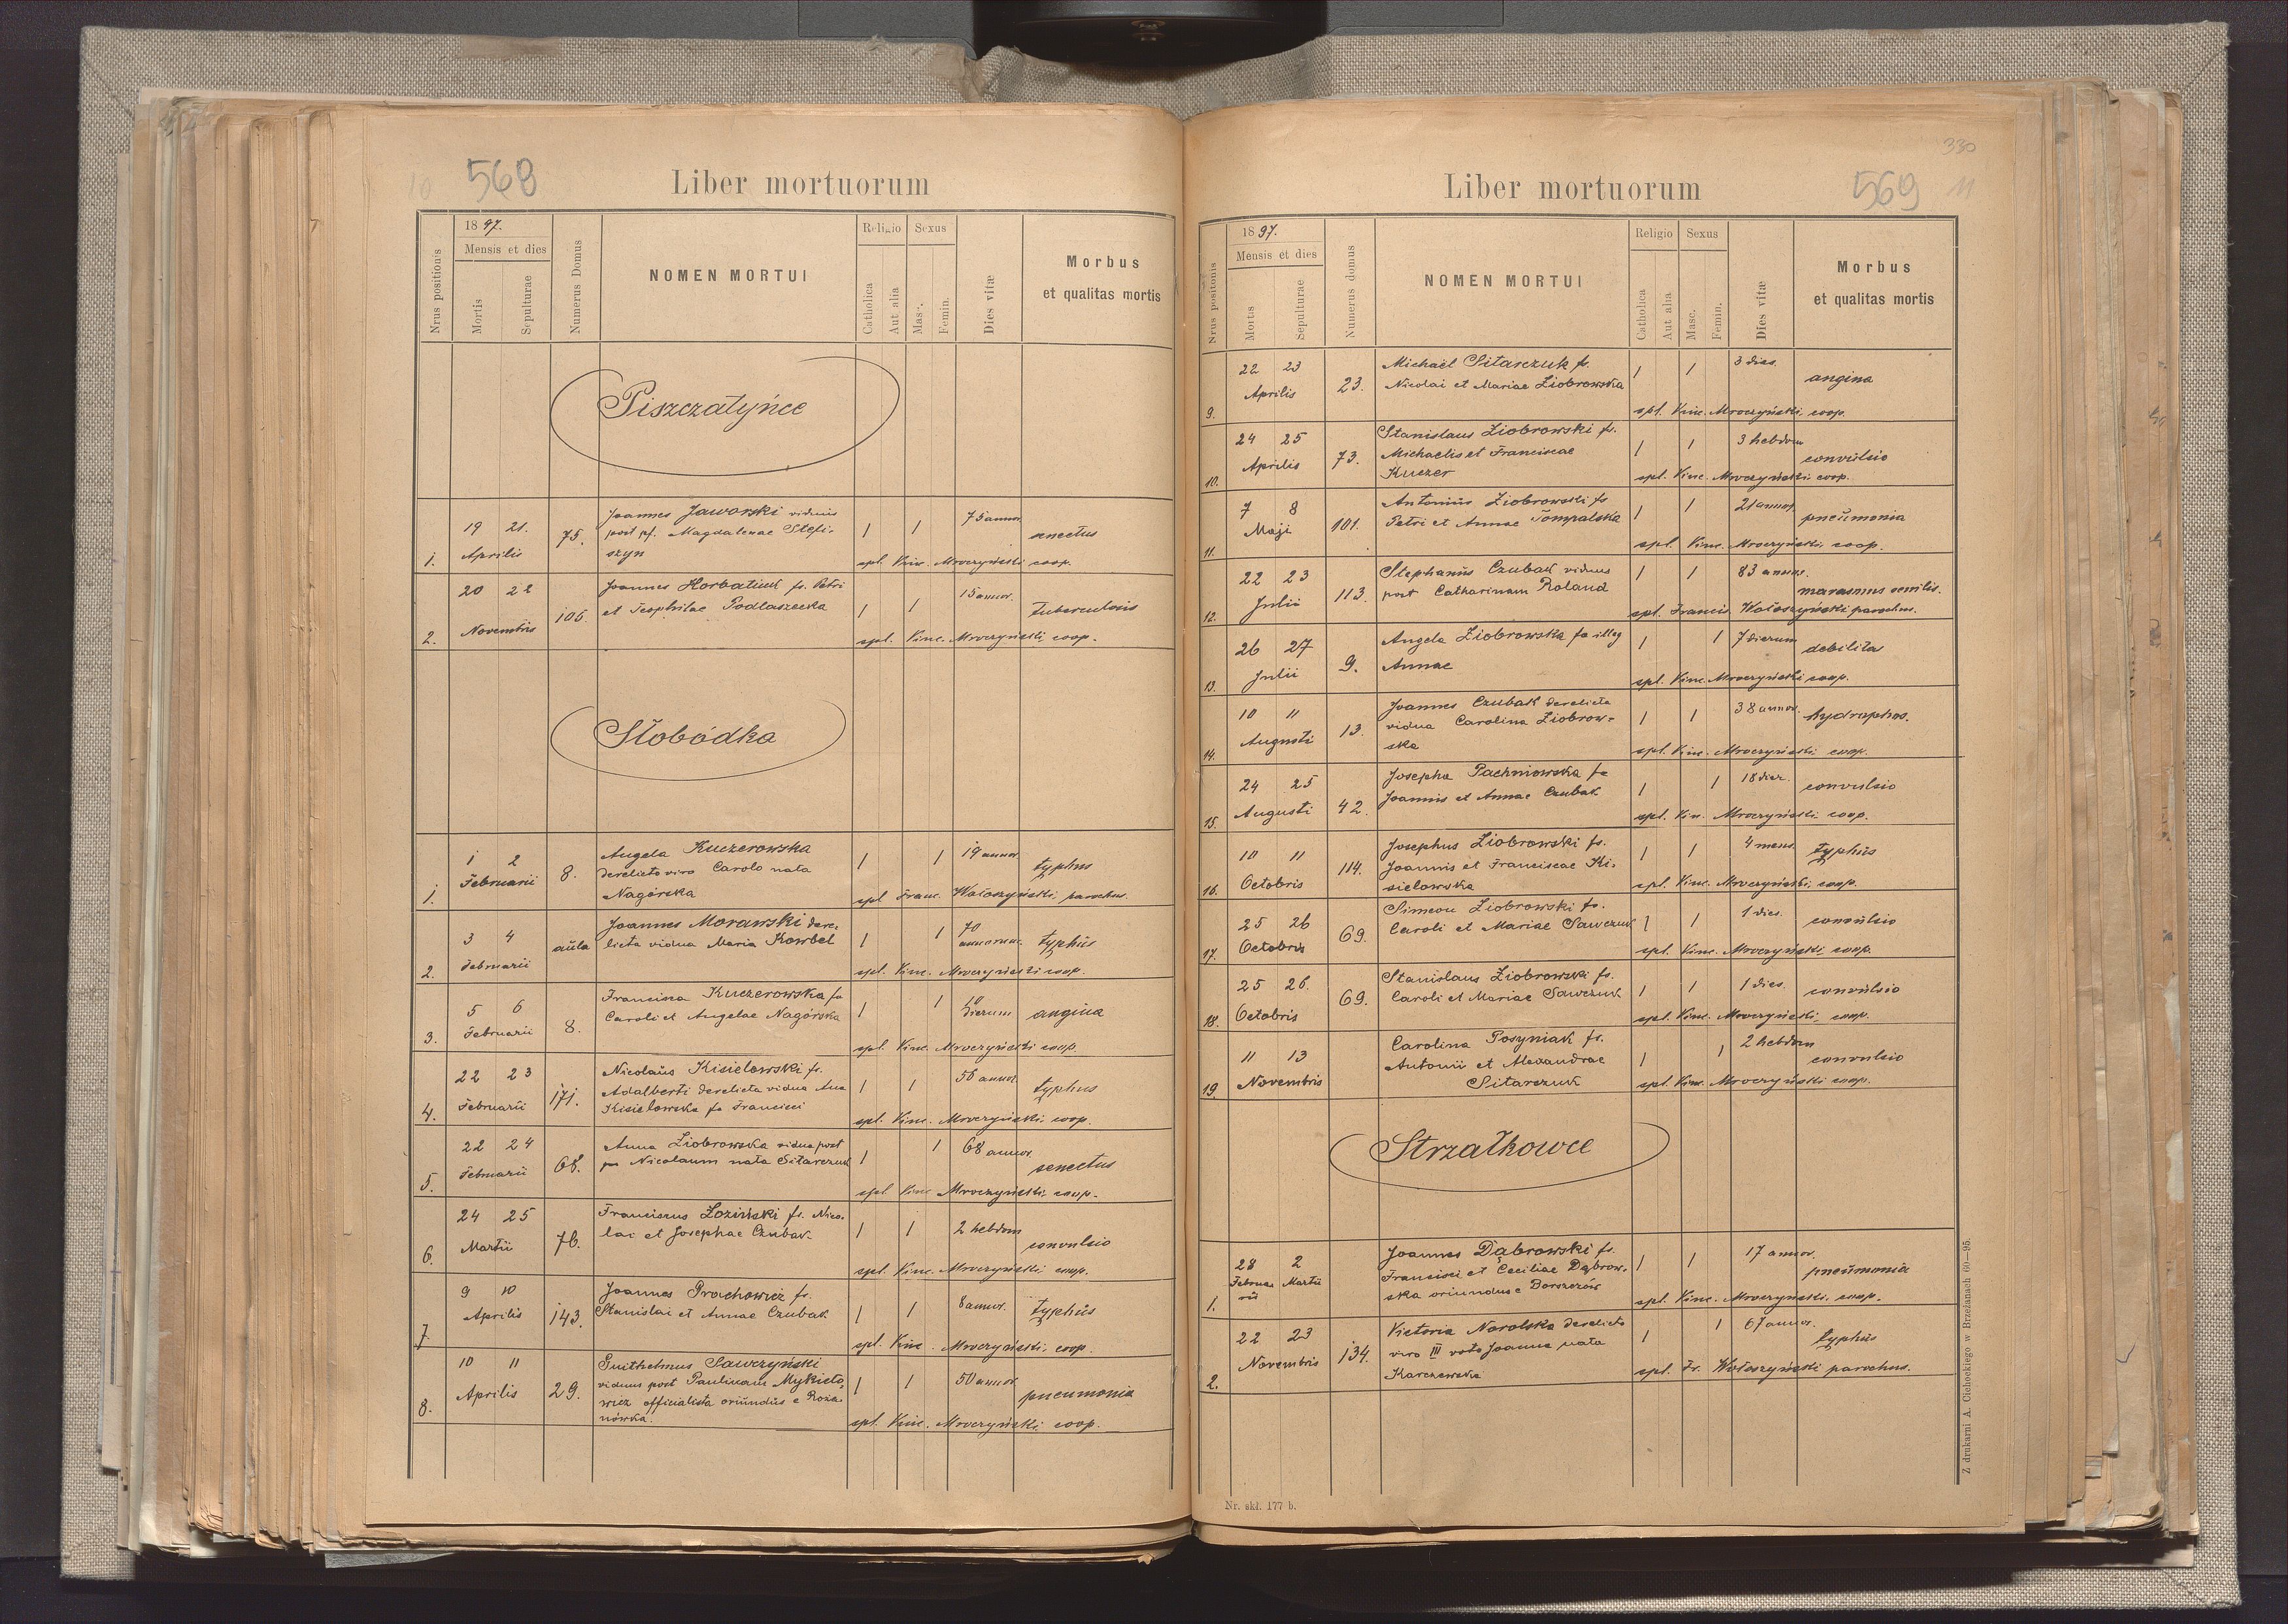 568
Liber mortuorum
1897.
Mensis et dies
Nrus positionis
Mortis
Sepulturae
Numerus Domus
NOMEN MORTUI
Religio
Sexus
Catholica
Aut alia
Masc.
Femin.
Dies vitæ
Morbus
et qualitas mortis
Piszczatyńce
1. 19 21. Aprilis 75.
Joannes Jaworski viduus
post pf. Magdalenae Stefi-
szyn
1 1 75 annor. senectus
spl. Vinc. Mroczyński coop.
2. 20 22 Novembris 106.
Joannes Horbatiuk fs. Petri
et Teophilae Podlaszecka
1 1 15 annor. tuberculosis
spl. Vinc. Mroczyński coop.
Słobódka
1. 1 2 Februarii 8.
Angela Kuczerowska
derelicto viro Carolo nata
Nagórska
1 1 19 annor. typhus
spl. Franc. Wołoszyński, parochus.
2. 3 4 Februarii aula
Joannes Morawski dere-
licta vidua Maria Kowbel
1 1 70 annorum typhus
spl. Vinc. Mroczyński coop.
3. 5 6 Februarii 8.
Francisca Kuczerowska fa
Caroli et Angelae Nagórska
1 1 10 dierum angina
spl. Vinc. Mroczyński coop.
4. 22 23 Februarii 171.
Nicolaus Kisielowski fs.
Adalberti derelicta vidua Ana
Kisielowska fa Francisci
1 1 56 annor. typhus
spl. Vinc. Mroczyński, coop.
5. 22 24 Februarii 68.
Anna Ziobrowska vidua post
Nicolaum nata Sitarczuk
1 1 68 annor. senectus
spl. Vinc. Mroczyński, coop.
6. 24 25 Martii 76.
Franciscus Łoziński fs. Nico-
lai et Josephae Czubak
1 1 2 hebdom convulsio
spl. Vinc. Mroczyński, coop.
7. 9 10 Aprilis 143.
Joannes Prochowicz fs.
Stanislai et Annae Czubak
1 1 8 annor. typhus
spl. Vinc. Mroczyński, coop.
8. 10 11 Aprilis 29.
Guilhelmus Sawczyński
viduus post Paulinam Mykieto-
wicz officialista oriundus e Roża-
nówka.
1 1 50 annor. pneumonia
spl. Vinc. Mroczyński, coop.
330
569
11
Liber mortuorum
1897.
Mensis et dies
Nrus positonis
Mortis
Sepulturae
Numerus domus
NOMEN MORTUI
Religio
Sexus
Catholica
Aut alia
Masc.
Femin.
Dies vitæ
Morbus
et qualitas mortis
9. 22 23 Aprilis 23.
Michaël Sitarczuk fs.
Nicolai et Mariae Ziobrowska
1 1 3 dies. angina
spl. Vinc. Mroczyński, coop.
10. 24 25 Aprilis 73.
Stanislaus Ziobrowski fs.
Michaelis et Franciscae
Kuczer
1 1 3 hebdom convulsio
spl. Vinc. Mroczyński coop.
11. 7 8 Maji 101.
Antonius Ziobrowski fs
Petri et Annae Tompalska
1 1 21 annor. pneumonia
spl. Vinc. Mroczyński, coop.
12. 22 23 Julii 113.
Stephanus Czubak viduus
post Catharinam Roland
1 1 83 annor. marasmus senilis.
spl. Francis. Wołoszyński parochus.
13. 26 27 Julii 9.
Angela Ziobrowska fa illeg
Annae
1 1 7 dierum debilita
spl. Vinc. Mroczyński coop.
14. 10 11 Augusti 13.
Joannes Czubak derelicta
vidua Carolina Ziobrow-
ska
1 1 38 annor. hydrophos.
spl. Vinc. Mroczyński, coop.
15. 24 25 Augusti 42.
Josepha Pachniowska fa
Joannis et Annae Czubak
1 1 18 dier. convulsio
spl. Vin. Mroczyński, coop.
16. 10 11 Octobris 114.
Josephus Ziobrowski fs.
Joannis et Franciscae Ki-
sielowska
1 1 4 mens. typhus
spl. Vinc. Mroczyński, coop.
17. 25 26 Octobris 69.
Simeon Ziobrowski fs.
Caroli et Mariae Sawczuk
1 1 1 dies. convulsio
spl. Vinc. Mroczyński, coop.
18. 25 26. Octobris 69.
Stanislaus Ziobrowski fs.
Caroli et Mariae Sawczuk
1 1 1 dies. convulsio
spl. Vinc. Mroczyński, coop.
19. 11 13 Novembris
Carolina Posyniak fs.
Antonii et Alexandrae
Sitarczuk
1 1 2 hebdom convulsio
spl. Vinc. Mroczyński coop.
Strzałkowce
1. 28 Februarii 2 Martii
Joannes Dąbrowski fs.
Francisci et Ceciliae Dąbrow-
ska oriundus e Borszczów
1 1 17 annor. pneumonia
spl. Vinc. Mroczyński, coop.
2. 22 23 Novembris 134.
Victoria Narolska derelicto
viro III voto Joanne nata
Karczewska
1 1 67 annor. typhus
spl. Fr. Wołoszyński parochus.
Nr. skł. 177 b.
Z drukarni A. Ciehockiego w Brzeżanach 60—95.